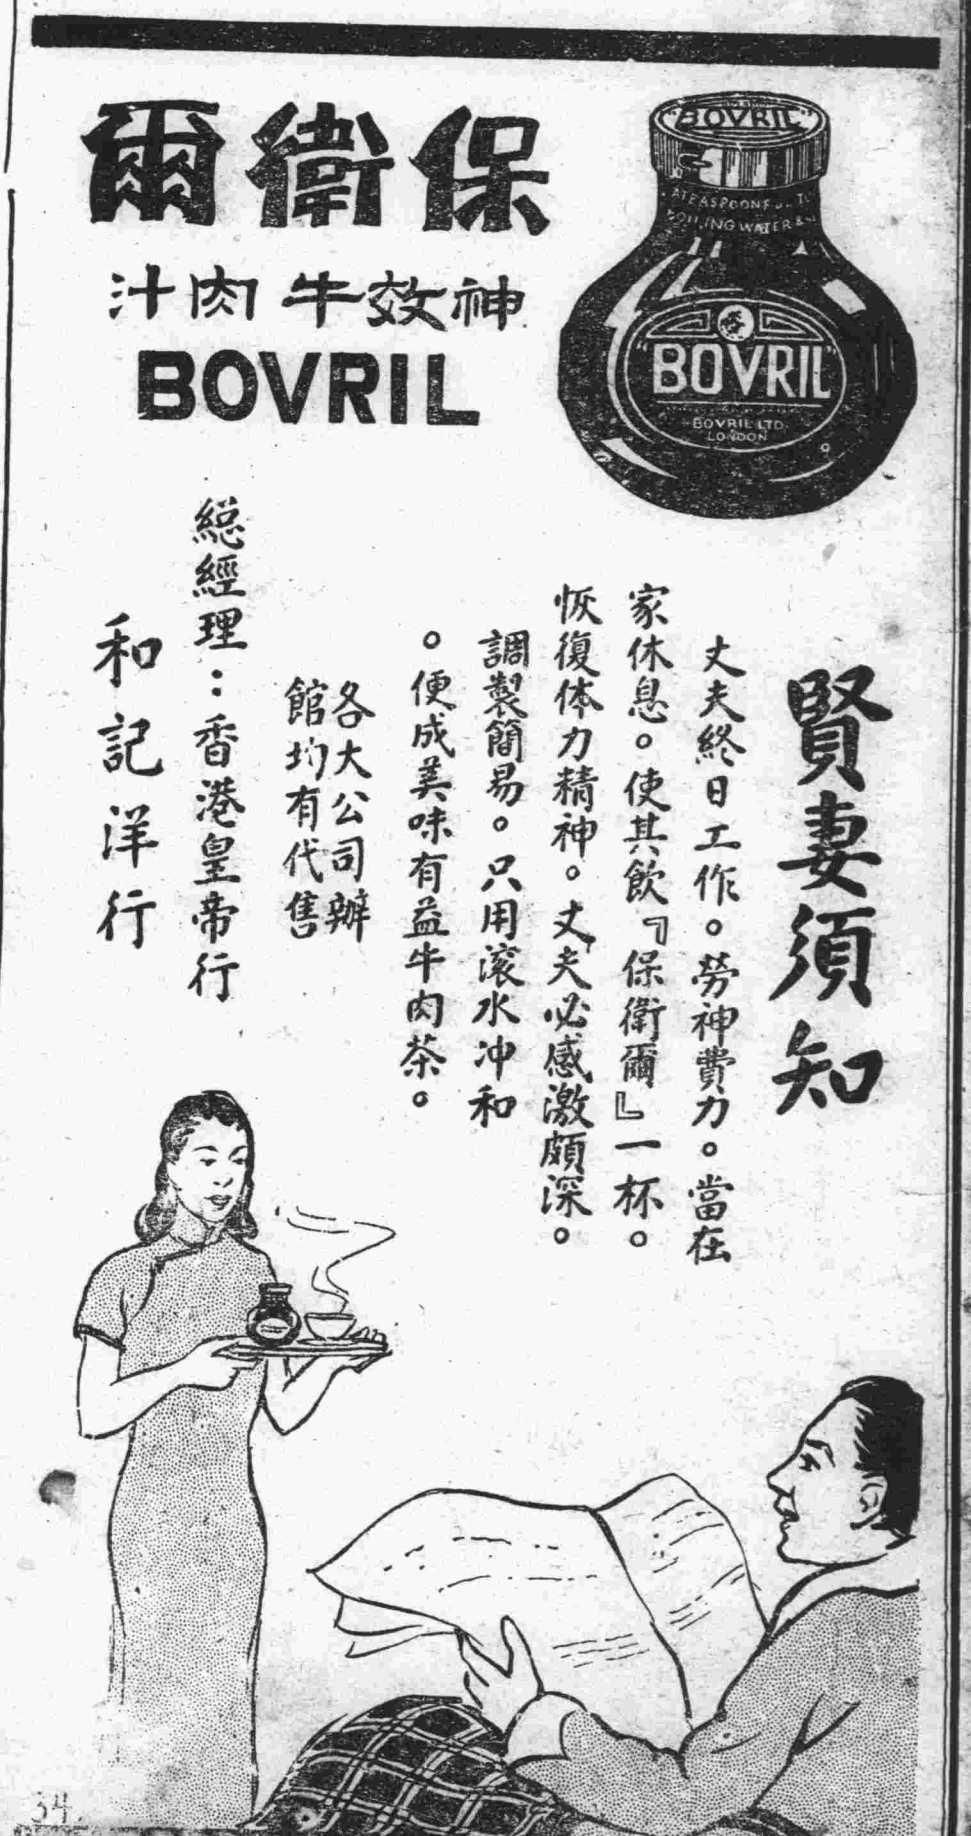 保衛爾
神效牛肉汁
BOVRIL
"BOVRIL"
A TEASPOONFUL TO
BOILING WATER &
"BOVRIL"
BOVRIL LTD.
LONDON
賢妻須知
丈夫終日工作。勞神費力。當在
家休息。使其飲『保衛爾』一杯。
恢復体力精神。丈夫必感激頗深。
調製簡易。只用滚水冲和
。便成美味有益牛肉茶。
各大公司辦
館均有代售
総經理：香港皇帝行
和記洋行
34.